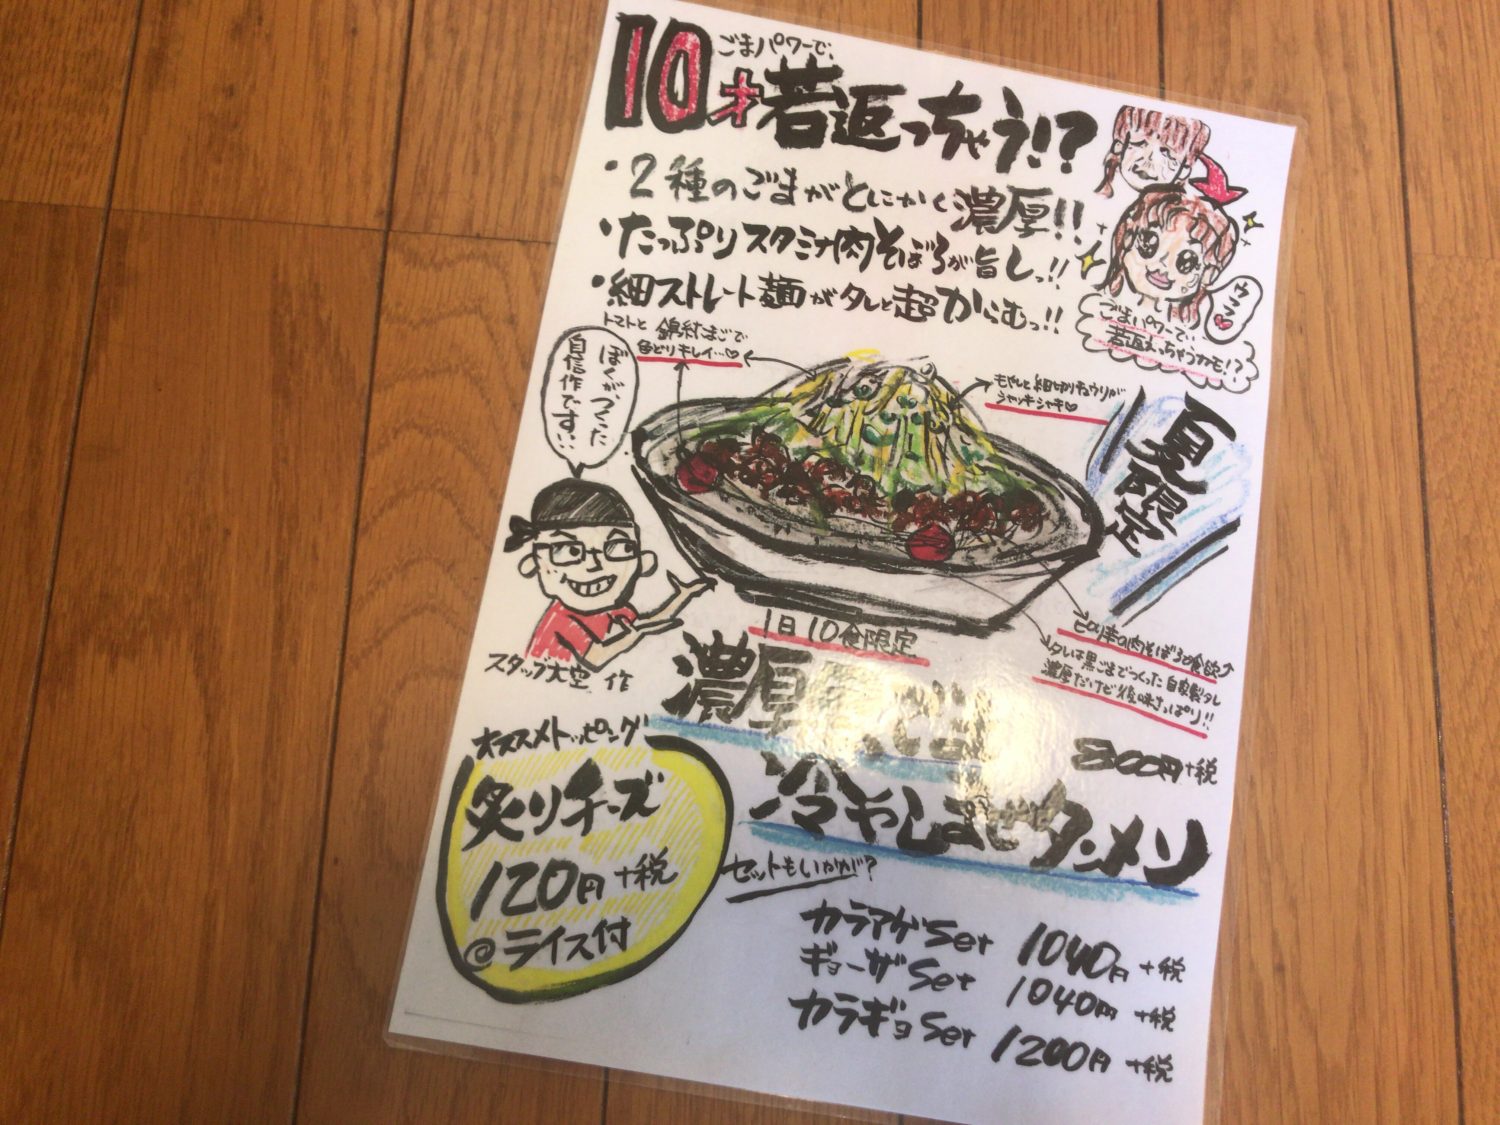 ごまパワーで、
10才若返っちゃう!?
・2種のごまがとにかく濃厚!!
・たっぷりスタミナ肉そぼろが旨しっ!!
・細ストレート麺がタレと超からむっ!!
ウマっ♡
ごまパワーで、
若返えっちゃうかも!?
トマトと 錦糸たまごで
色どりキレイ…♡
もやしと細切りキュウリが
シャッキシャキ♡
ぼくがつくった
自信作です…
夏限定
スタッフ大空 作
1日10食限定
ピリ辛の肉そぼろで食欲↑
タレは黒ごまでつくった自家製タレ
濃厚だけど後味さっぱり!!
濃厚
冷やしまぜタンメン
800円+税
オススメトッピング
炙りチーズ
120円+税
@ライス付
セットもいかが?
カラアゲset 1040円+税
ギョーザset 1040円+税
カラギョset 1200円+税